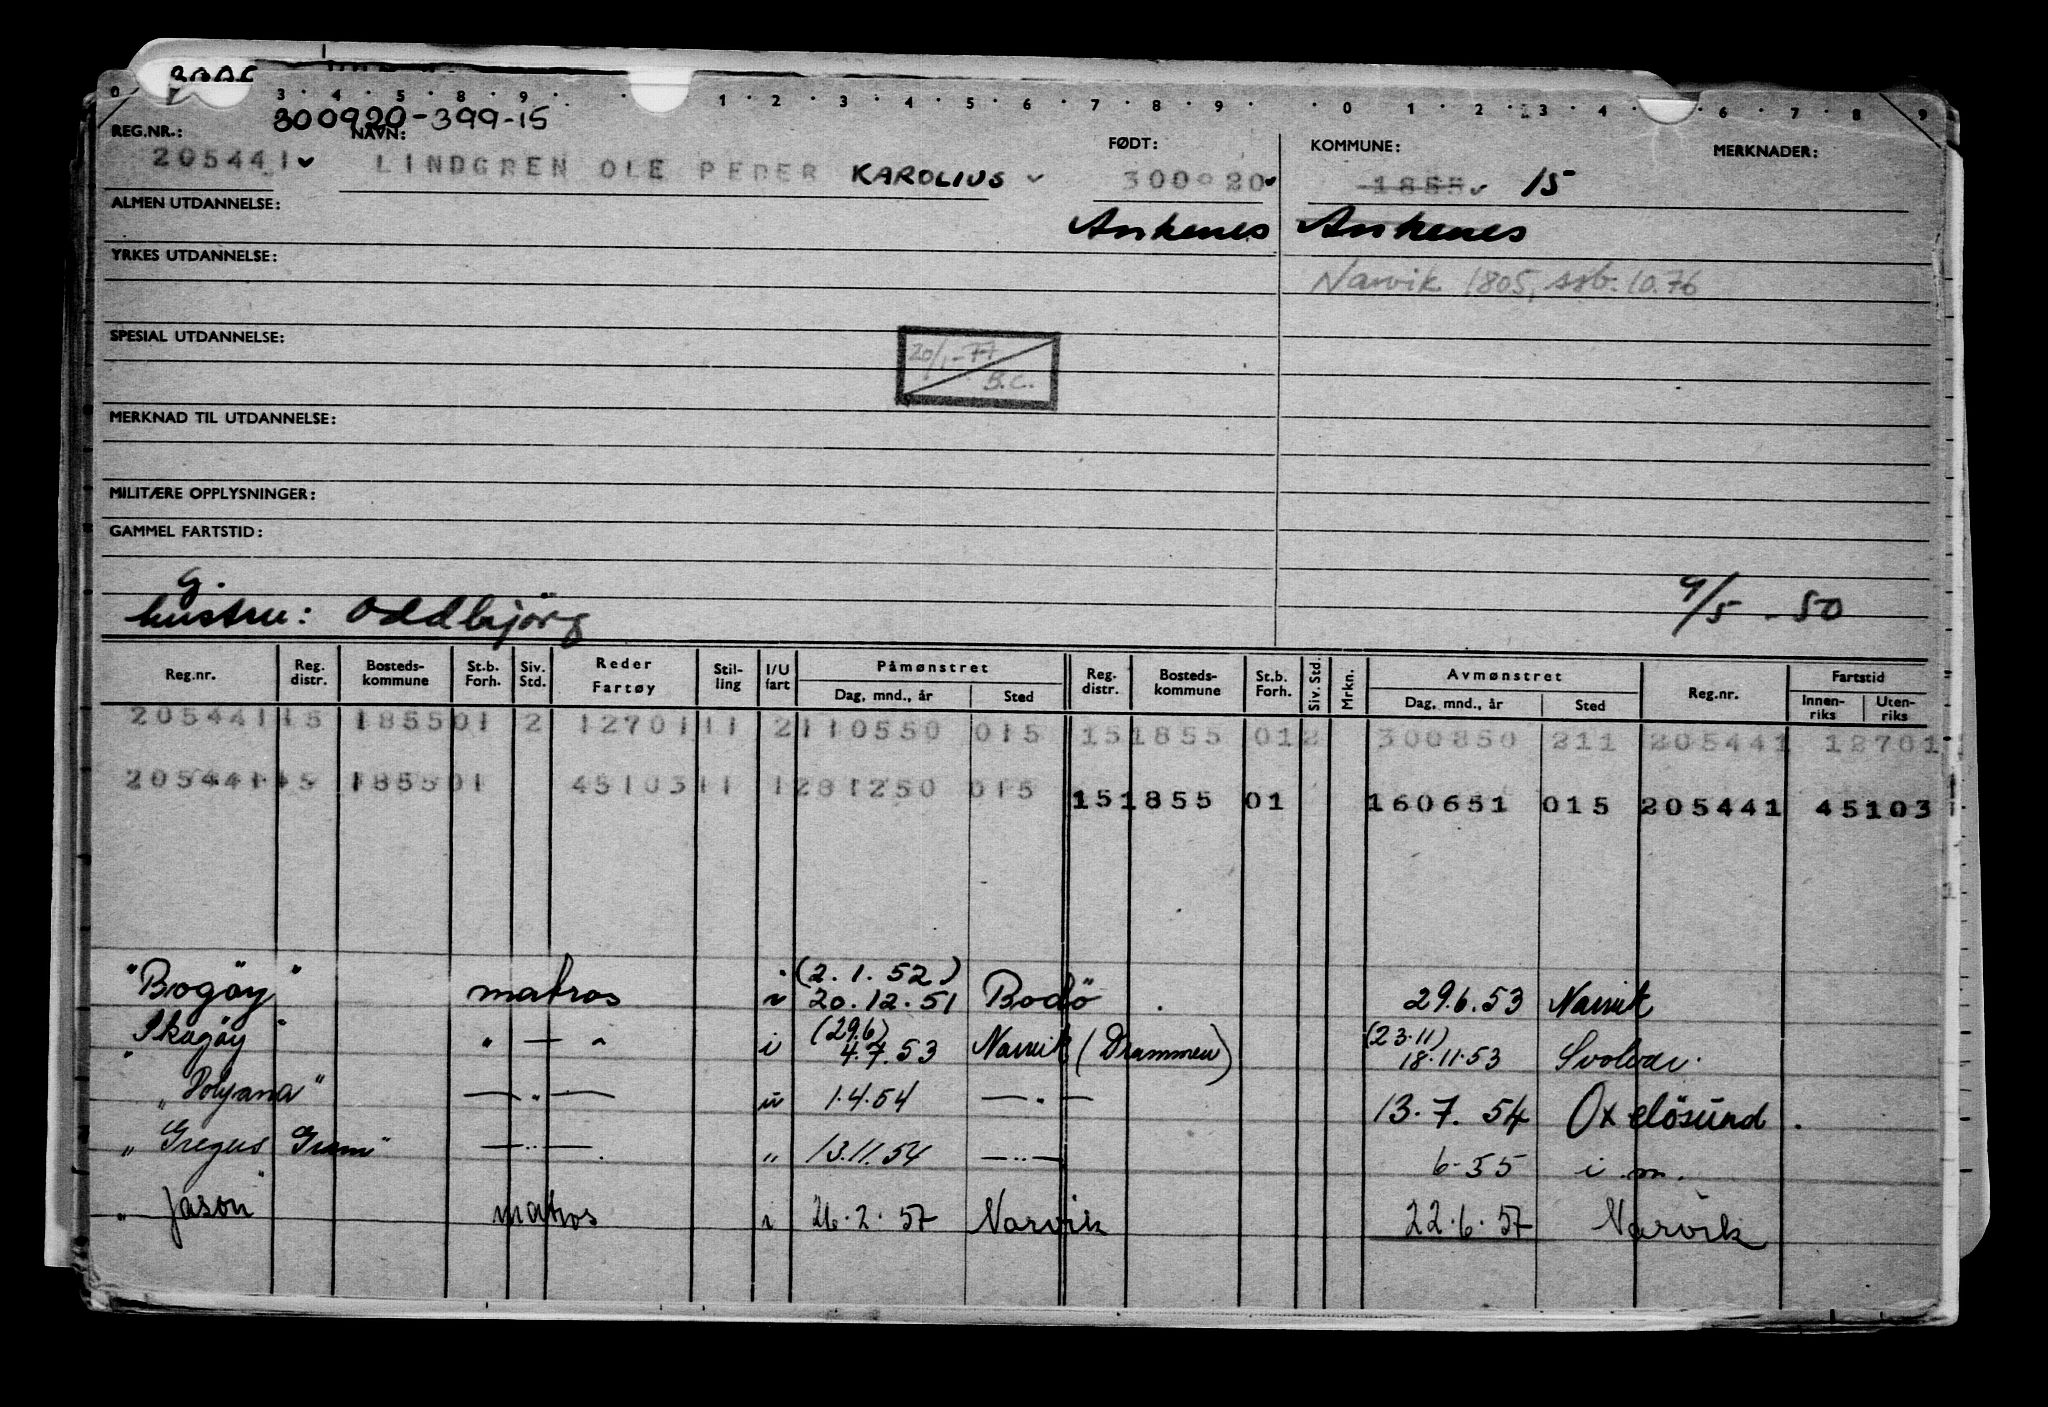 0 3 · 4 · 5 · 8 · 9 · · 1 · 2 · 3 · 4 · 5 · 6 · 7 · 8 · 9 · · 0 1 · 2 · 3 · 4 · 6 · 7 · 8 9
300920-399-15
REG.NR.: NAVN: FØDT: KOMMUNE: MERKNADER:
205441 LINDGREN OLE PEDER KAROLIUS 300920 1855 15
ALMEN UTDANNELSE: Ankenes Ankenes
YRKES UTDANNELSE: Narvik 1805, ssb. 10.76
SPESIAL UTDANNELSE:
20/1-77
B.C.
MERKNAD TIL UTDANNELSE:
MILITÆRE OPPLYSNINGER:
GAMMEL FARTSTID:
g.
hustru: Oddbjörg 9/5 - 50
Reg.nr. Reg. distr. Bosteds-kommune St.b. Forh. Siv. Std. Reder Fartøy Stil-ling I/U fart Påmønstret Dag, mnd., år Sted Reg. distr. Bosteds-kommune St.b. Forh. Siv. Std. Mrkn. Avmønstret Dag, mnd., år Sted Reg.nr. Fartstid Innen-riks Uten-riks
205441 15 185501 2 1270111 2110550 015 151855 012 300850 211 205441 12701
205441 15 185501 4510311 1281250 015 151855 01 160651 015 205441 45103
(2.1.52)
"Bogöy" matros i 20.12.51 Bodö . 29.6.53 Narvik
(29.6) (23.11)
"Skagöy" " — " i 4.7.53 Narvik (Drammen) 18.11.53 Svolvær.
"Polyana" — " — u 1.4.54 — " — 13.7.54 Oxelösund .
"Gregus Gram" — " — " 13.11.54 — " — 6-55 i m.
"Jason" matros i 26.2.57 Narvik 22.6.57 Narvik